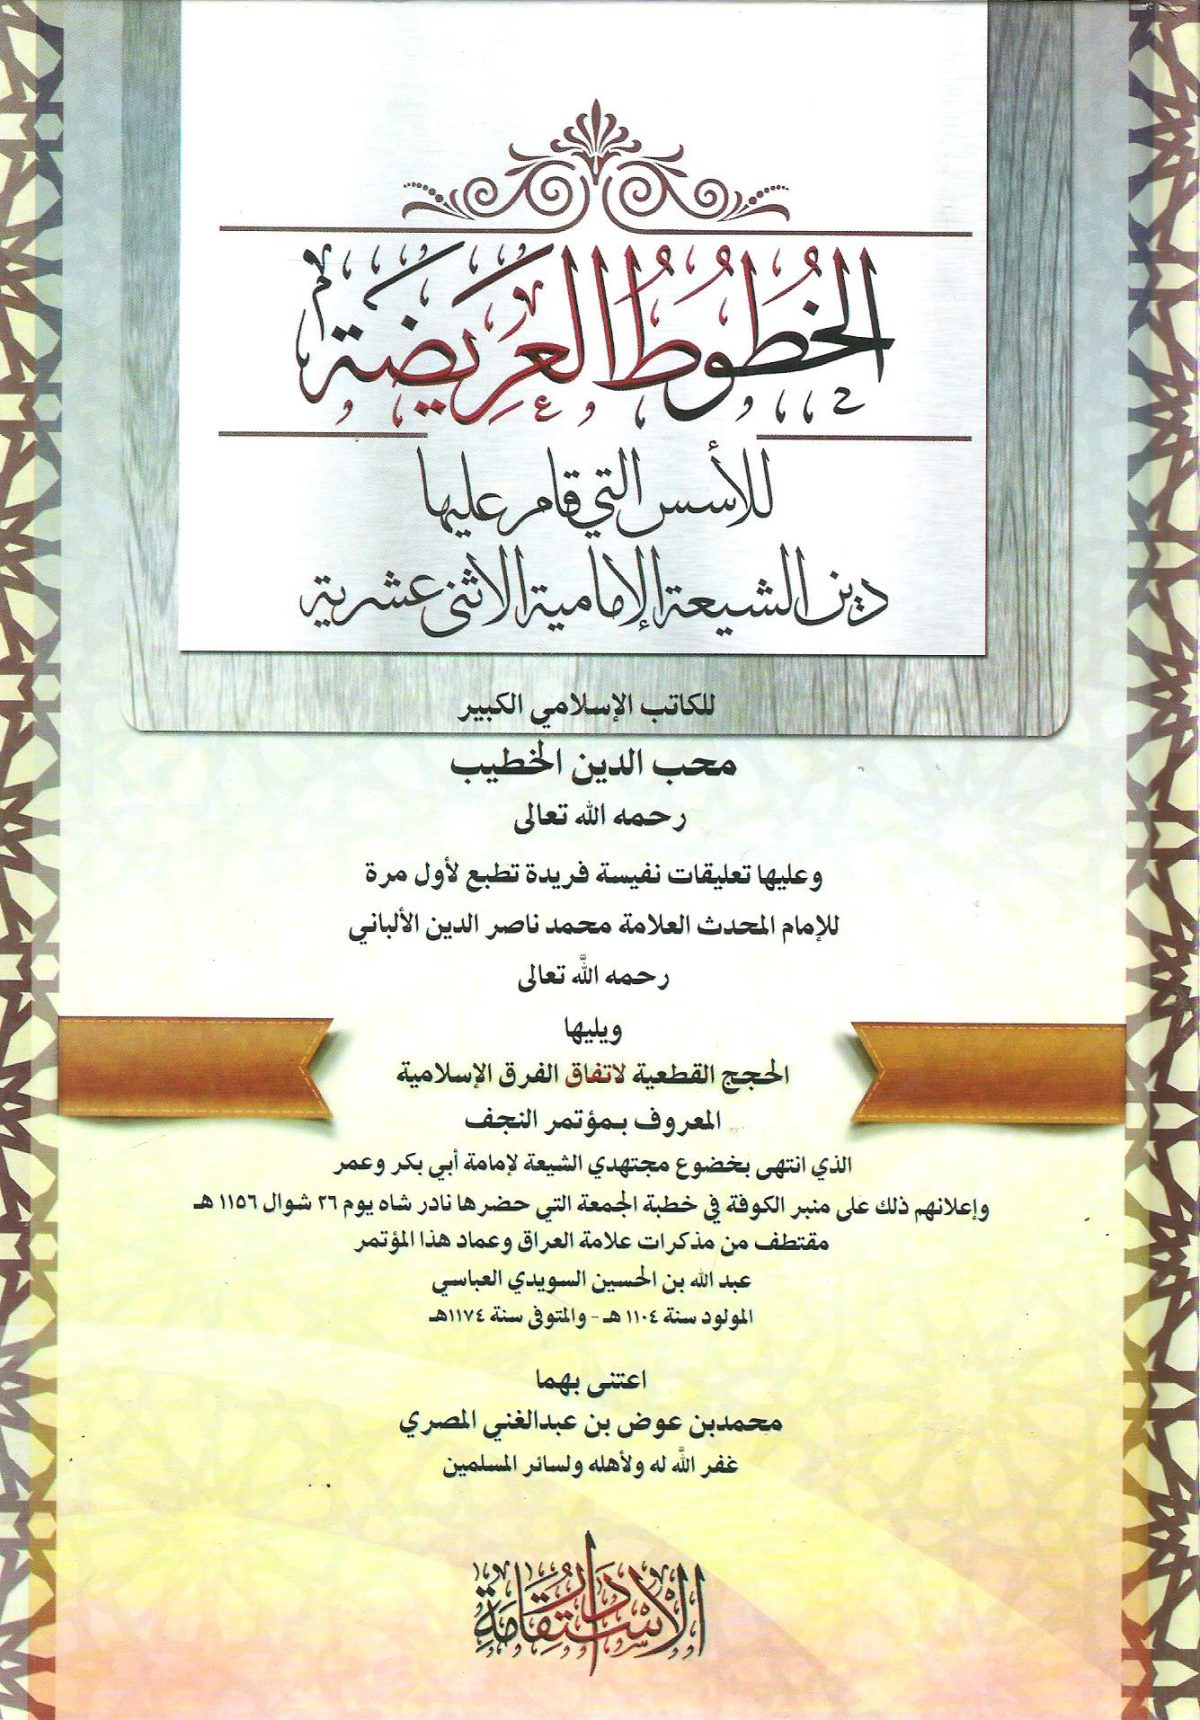 الخُطُوطُ العَرِيضَة
للأسس التي قام عليها
دين الشيعة الإمامية الاثنى عشرية
للكاتب الإسلامي الكبير
محب الدين الخطيب
رحمه الله تعالى
وعليها تعليقات نفيسة فريدة تطبع لأول مرة
للإمام المحدث العلامة محمد ناصر الدين الألباني
رحمه اللَّه تعالى
ويليها
الحجج القطعية لاتفاق الفرق الإسلامية
المعروف بـمؤتمر النجف
الذي انتهى بخضوع مجتهدي الشيعة لإمامة أبي بكر وعمر
وإعلانهم ذلك على منبر الكوفة في خطبة الجمعة التي حضرها نادر شاه يوم ٢٦ شوال ١١٥٦ هـ
مقتطف من مذكرات علامة العراق وعماد هذا المؤتمر
عبد الله بن الحسين السويدي العباسي
المولود سنة ١١٠٤ هـ - والمتوفى سنة ١١٧٤هـ
اعتنى بهما
محمدبن عوض بن عبدالغني المصري
غفر اللَّه له ولأهله ولسائر المسلمين
دار الاستقامة